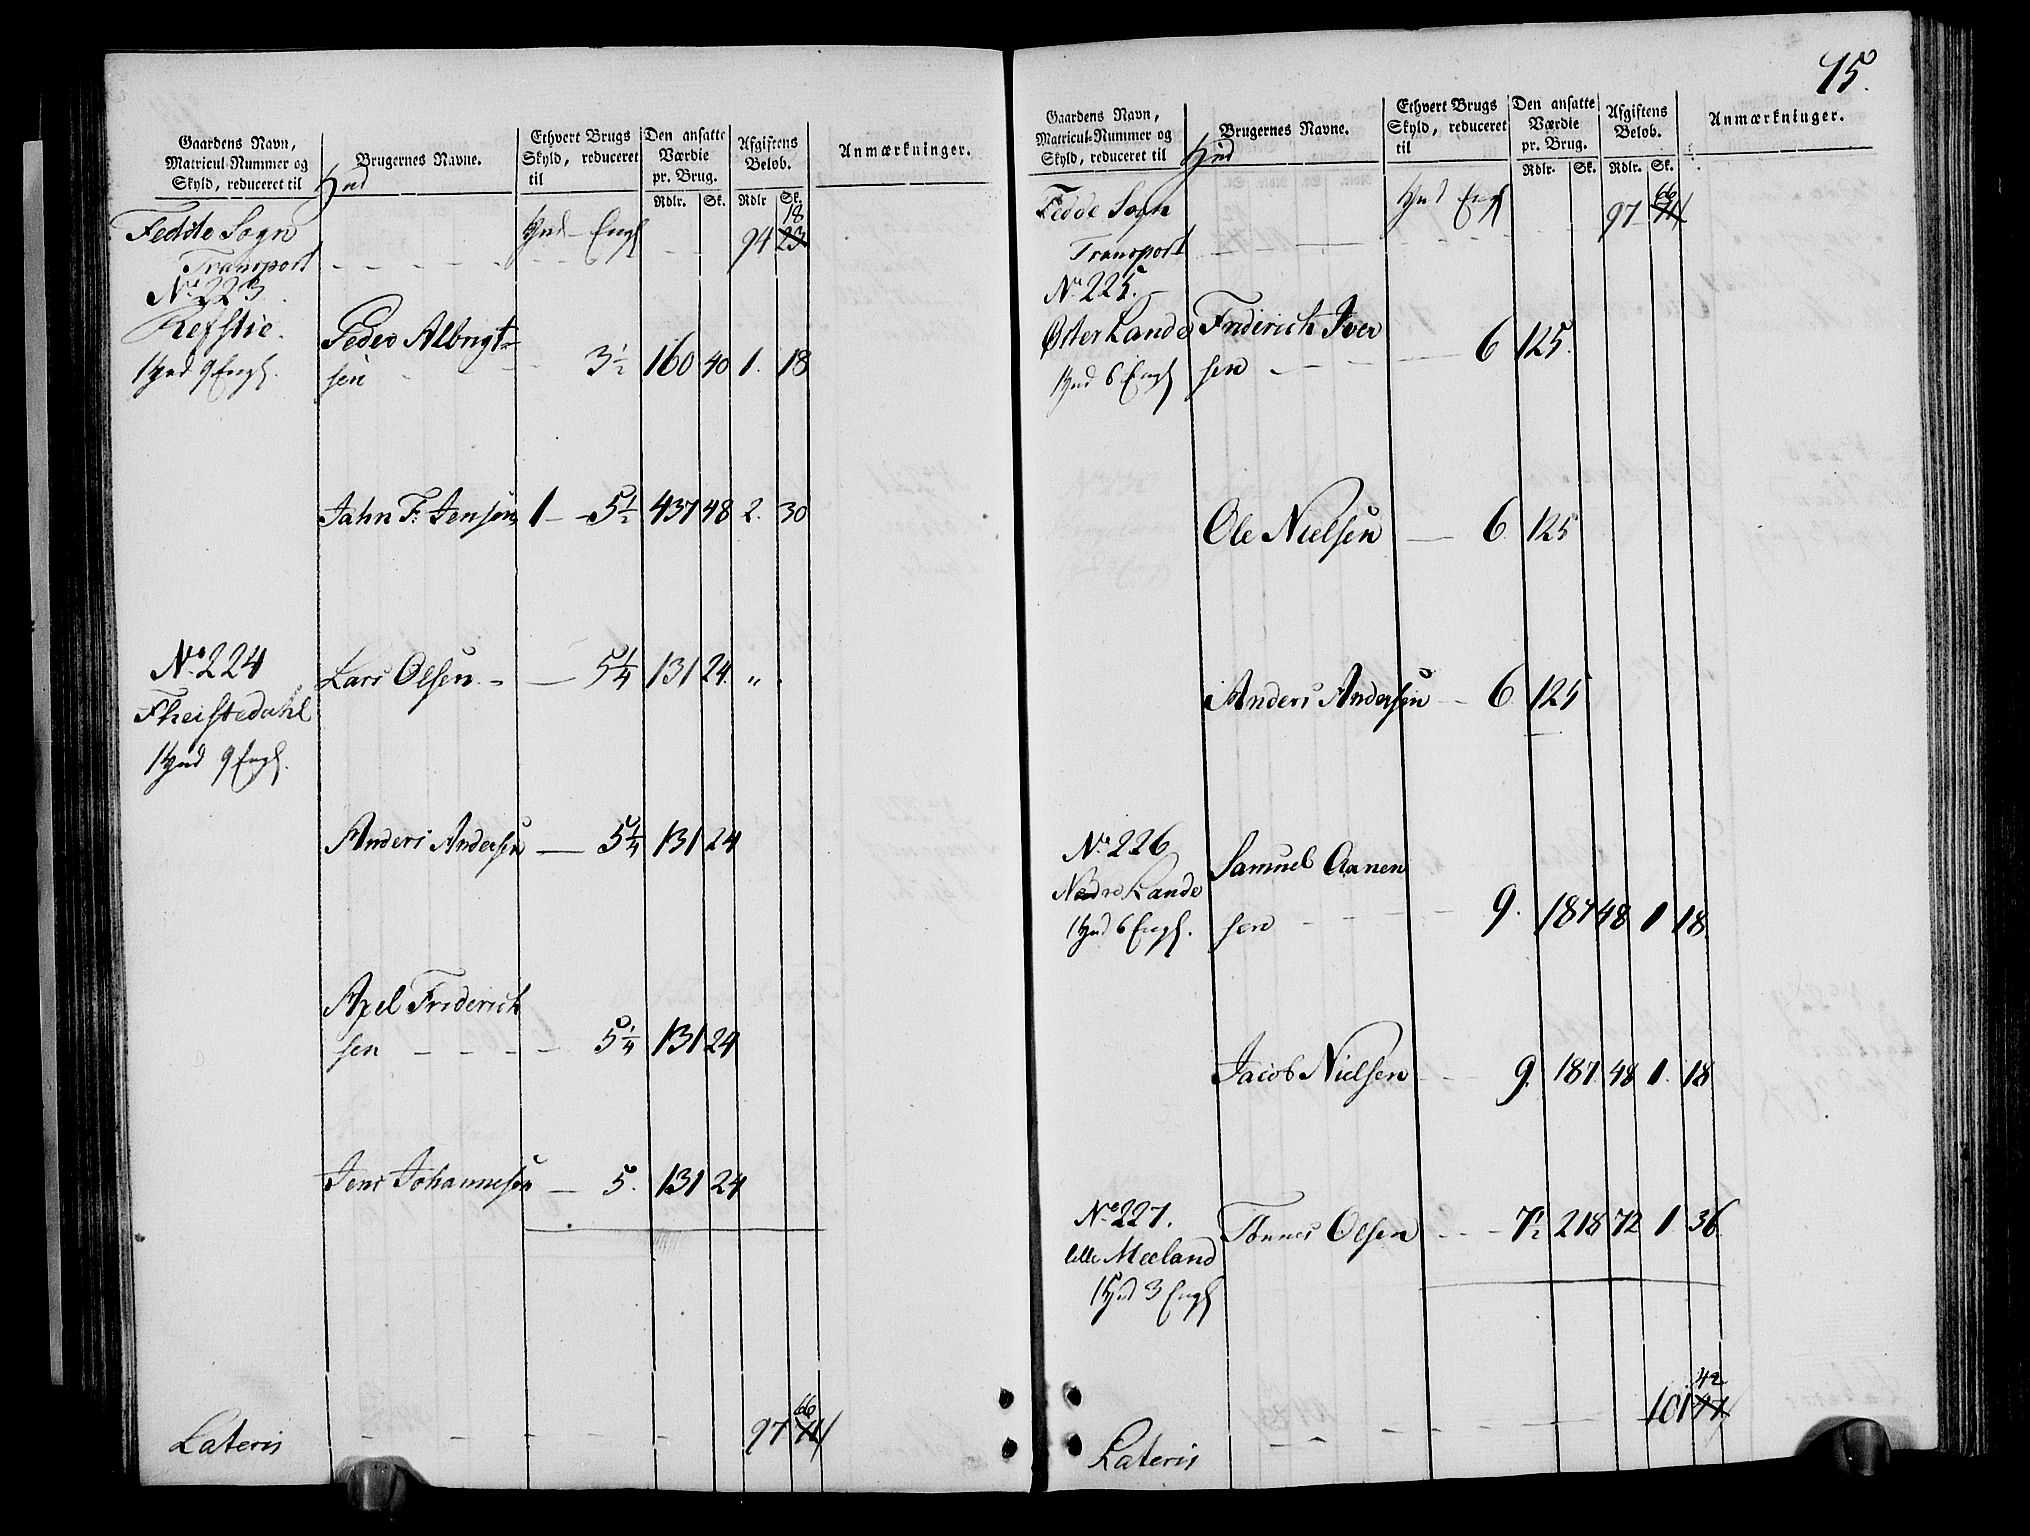 Gaardens Navn,
Matricul-Nummer og
Skyld, reduceret til
Hud
Brugernes Navne.
Ethvert Brugs
Skyld, reduceret
til
Den ansatte
Værdie
pr. Brug.
Rdlr. Sk.
Afgiftens
Beløb.
Rdlr Sk.
Anmærkninger.
18
Fedde Sogn Hud Engl 94 23
Transport
No 223
Refstie. Peder Albregt-
1 Hud 9 Engl. sen 3½ 160 40 1. 18
Jahn F. Jensen 1 - 5½ 437 48 2. 30
No 224 Lars Olsen - 5¼ 131 24 „
Fheistedahl
1 Hud 9 Engl.
Anders Andersen - 5¼ 131 24
Axel Friderich
sen - 5¼ 131 24
Jens Johannesen - 5. 131 24
66
Lateris 97 71
15.
Gaardens Navn,
Matricul-Nummer og
Skyld, reduceret til
Hud
Brugernes Navne.
Ethvert Brugs
Skyld, reduceret
til
Den ansatte
Værdie
pr. Brug.
Rdlr. Sk.
Afgiftens
Beløb.
Rdlr. Sk.
Anmærkninger.
66
Fedde Sogn Hud Engl 97 71
Transport
No 225.
Øster Lande Friderich Iver
1 Hud 6 Engl sen - 6 125.
Ole Nielsen - 6 125
Anders Andersen - 6 125
No 226 Samuel Aanen
Nedre Lande
1 Hud 6 Engl. sen - 9. 187 48 1 18.
Jacob Nielsen - 9. 187. 48 1. 18
No 227. Tønnes Olsen - 7½ 218 72 1 36.
lille Mæland
1 Hud 3 Engl
42
Lateris 101 47